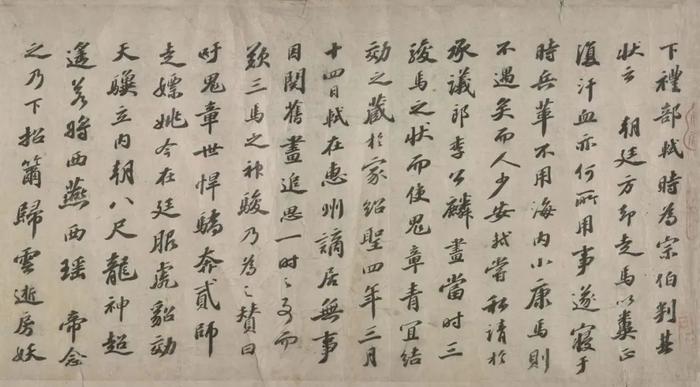 下禮部軾時為宗伯判其
狀云 朝廷方却走馬以糞正
復汗血亦何所用事遂寢于
時兵革不用海內小康馬則
不遇矣而人少安軾嘗私請於
承議郎李公麟畫當時三
駿馬之狀而使鬼章青宜結
効之藏於家紹聖四年三月
十四日軾在惠州謫居無事
因閱舊畫追思一時之事而
歎三馬之神駿乃為之贊曰
吁鬼章世悍驕奔貳師
走嫖姚今在廷服虎貂効
天驥立內朝八尺龍神超
遙若將西燕西瑤 帝念
之乃下招籋歸雲逝房妖